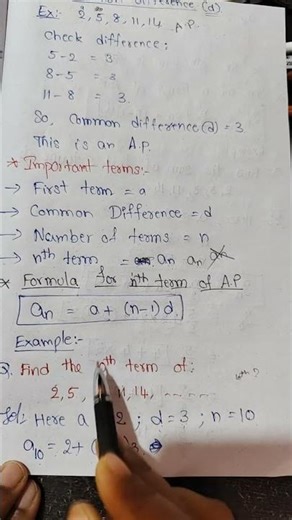 difference (d)
Ex:- 2, 5, 8, 11, 14 A.P.
Check difference;
5-2 = 3
8-5 = 3
11-8 = 3.
So, Common difference (d) = 3
This is an A.P.
* Important terms:-
→ First term = a
→ Common Difference = d
→ Number of terms = n
→ nth term = an
* Formula for nth term of A.P
an = a + (n-1) d.
Example:-
Q. Find the nth term of:
2, 5, 11, 14,
Sol: Here a 2 ; d = 3 ; n = 10
a10 = 2+ (